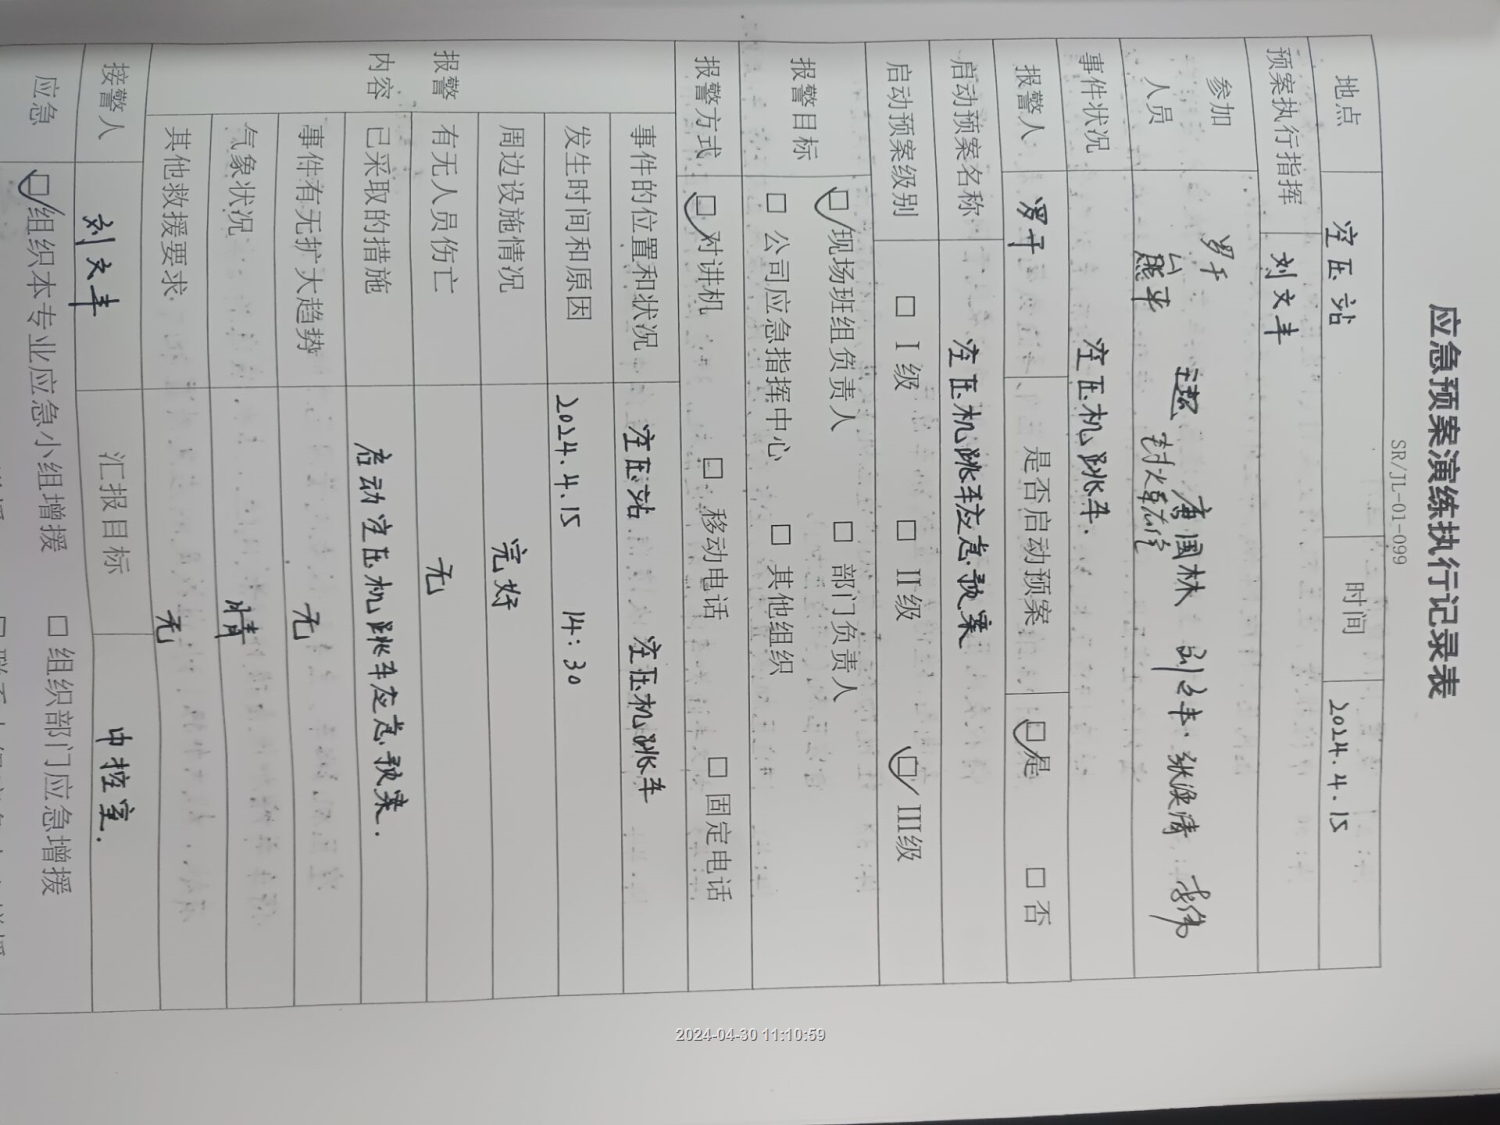 应急预案演练执行记录表
SR/JL-01-099
地点 空压站 时间 2024.4.15
预案执行指挥 刘文丰
参加人员 罗千 熊平 唐国林 刘文丰 张焕清
事件状况 空压机跳车.
报警人 罗千 是否启动预案 ☑是 □否
启动预案名称 空压机跳车应急预案
启动预案级别 □ I级 □ II级 ☑ III级
报警目标 ☑现场班组负责人 □ 部门负责人
□ 公司应急指挥中心 □ 其他组织
报警方式 ☑对讲机 □ 移动电话 □ 固定电话
报警内容
事件的位置和状况 空压站 空压机跳车
发生时间和原因 2024.4.15 14:30
周边设施情况 完好
有无人员伤亡 无
已采取的措施 启动空压机跳车应急预案.
事件有无扩大趋势 无
气象状况 晴
其他救援要求 无
接警人 刘文丰 汇报目标 中控室.
应急 ☑组织本专业应急小组增援 □ 组织部门应急增援